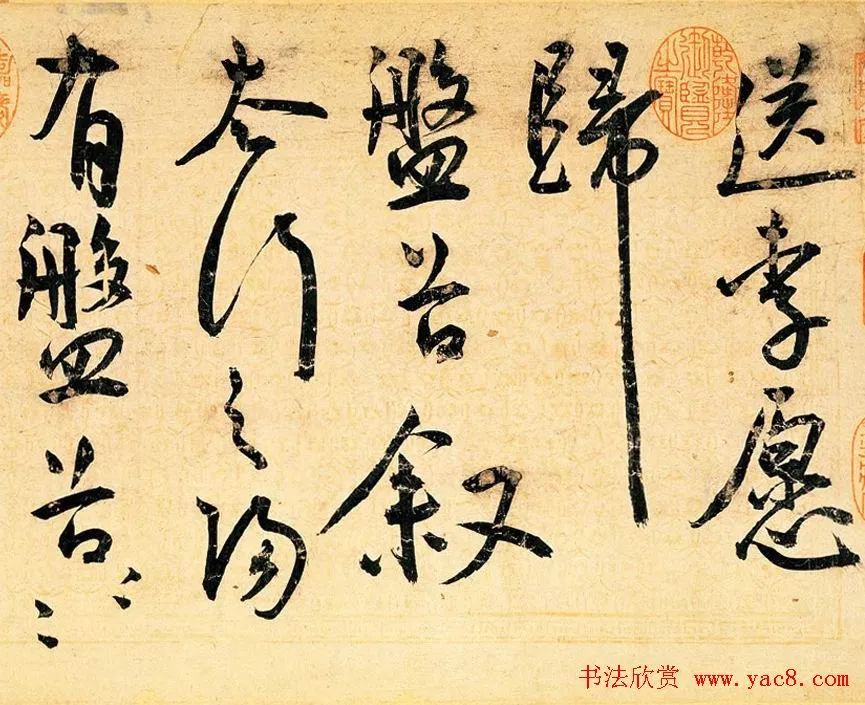 送李愿
歸
盤谷叙
太行之陽
有盤谷〻〻
乾隆御覽之寶
书法欣赏 www.yac8.com